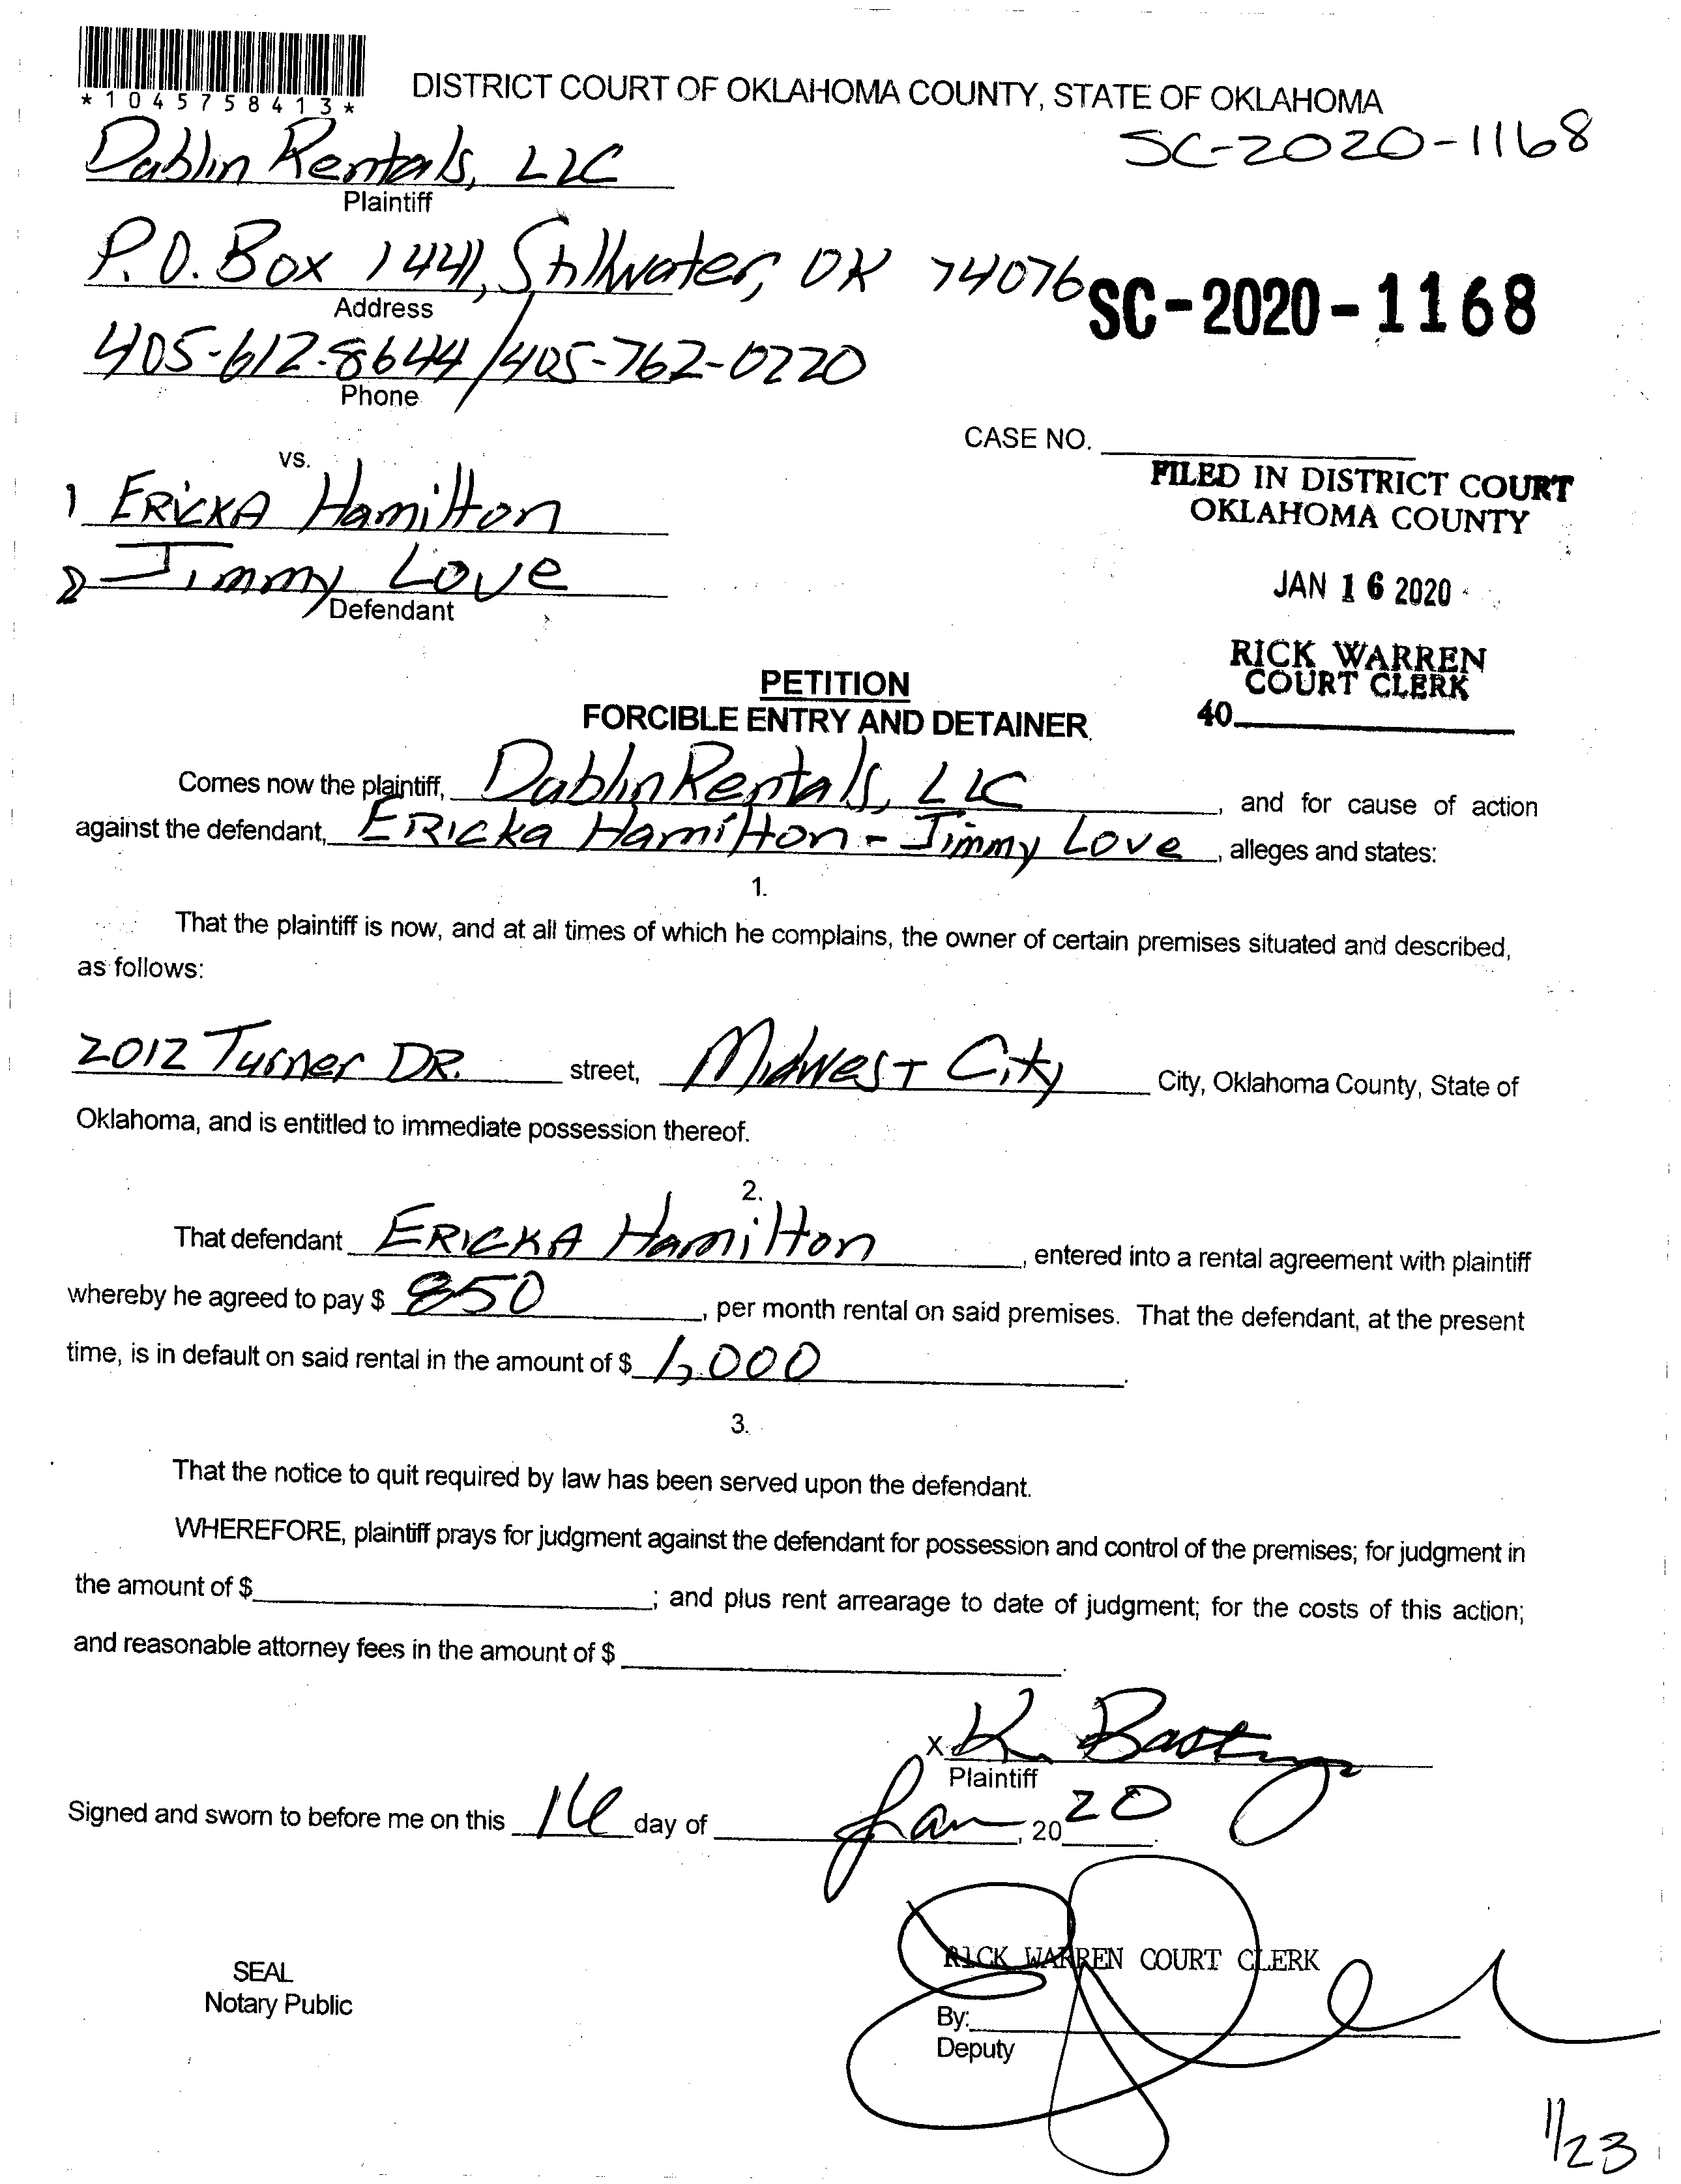 *1045758413*
DISTRICT COURT OF OKLAHOMA COUNTY, STATE OF OKLAHOMA
SC-2020-1168
Dablin Rentals, LLC
Plaintiff
P.O. Box 1441, Stillwater, OK 74076
SC-2020-1168
Address
405-612-8644/405-762-0220
Phone
CASE NO.
vs.
FILED IN DISTRICT COURT
OKLAHOMA COUNTY
1 ERicKA Hamilton
2 Jimmy Love
Defendant
JAN 16 2020
RICK WARREN
COURT CLERK
40
PETITION
FORCIBLE ENTRY AND DETAINER
Comes now the plaintiff, Dablin Rentals, LLC, and for cause of action
against the defendant, ERicka Hamilton - Jimmy Love, alleges and states:
1.
That the plaintiff is now, and at all times of which he complains, the owner of certain premises situated and described,
as follows:
2012 Turner DR. street, MidwesT City City, Oklahoma County, State of
Oklahoma, and is entitled to immediate possession thereof.
2.
That defendant ERICKA Hamilton, entered into a rental agreement with plaintiff
whereby he agreed to pay $ 850, per month rental on said premises. That the defendant, at the present
time, is in default on said rental in the amount of $ 1,000.
3.
That the notice to quit required by law has been served upon the defendant.
WHEREFORE, plaintiff prays for judgment against the defendant for possession and control of the premises; for judgment in
the amount of $ ; and plus rent arrearage to date of judgment; for the costs of this action;
and reasonable attorney fees in the amount of $ .
X K.
Plaintiff
Signed and sworn to before me on this 16 day of Jan, 20 20.
RICK WARREN COURT CLERK
SEAL
Notary Public
By:
Deputy
1/23